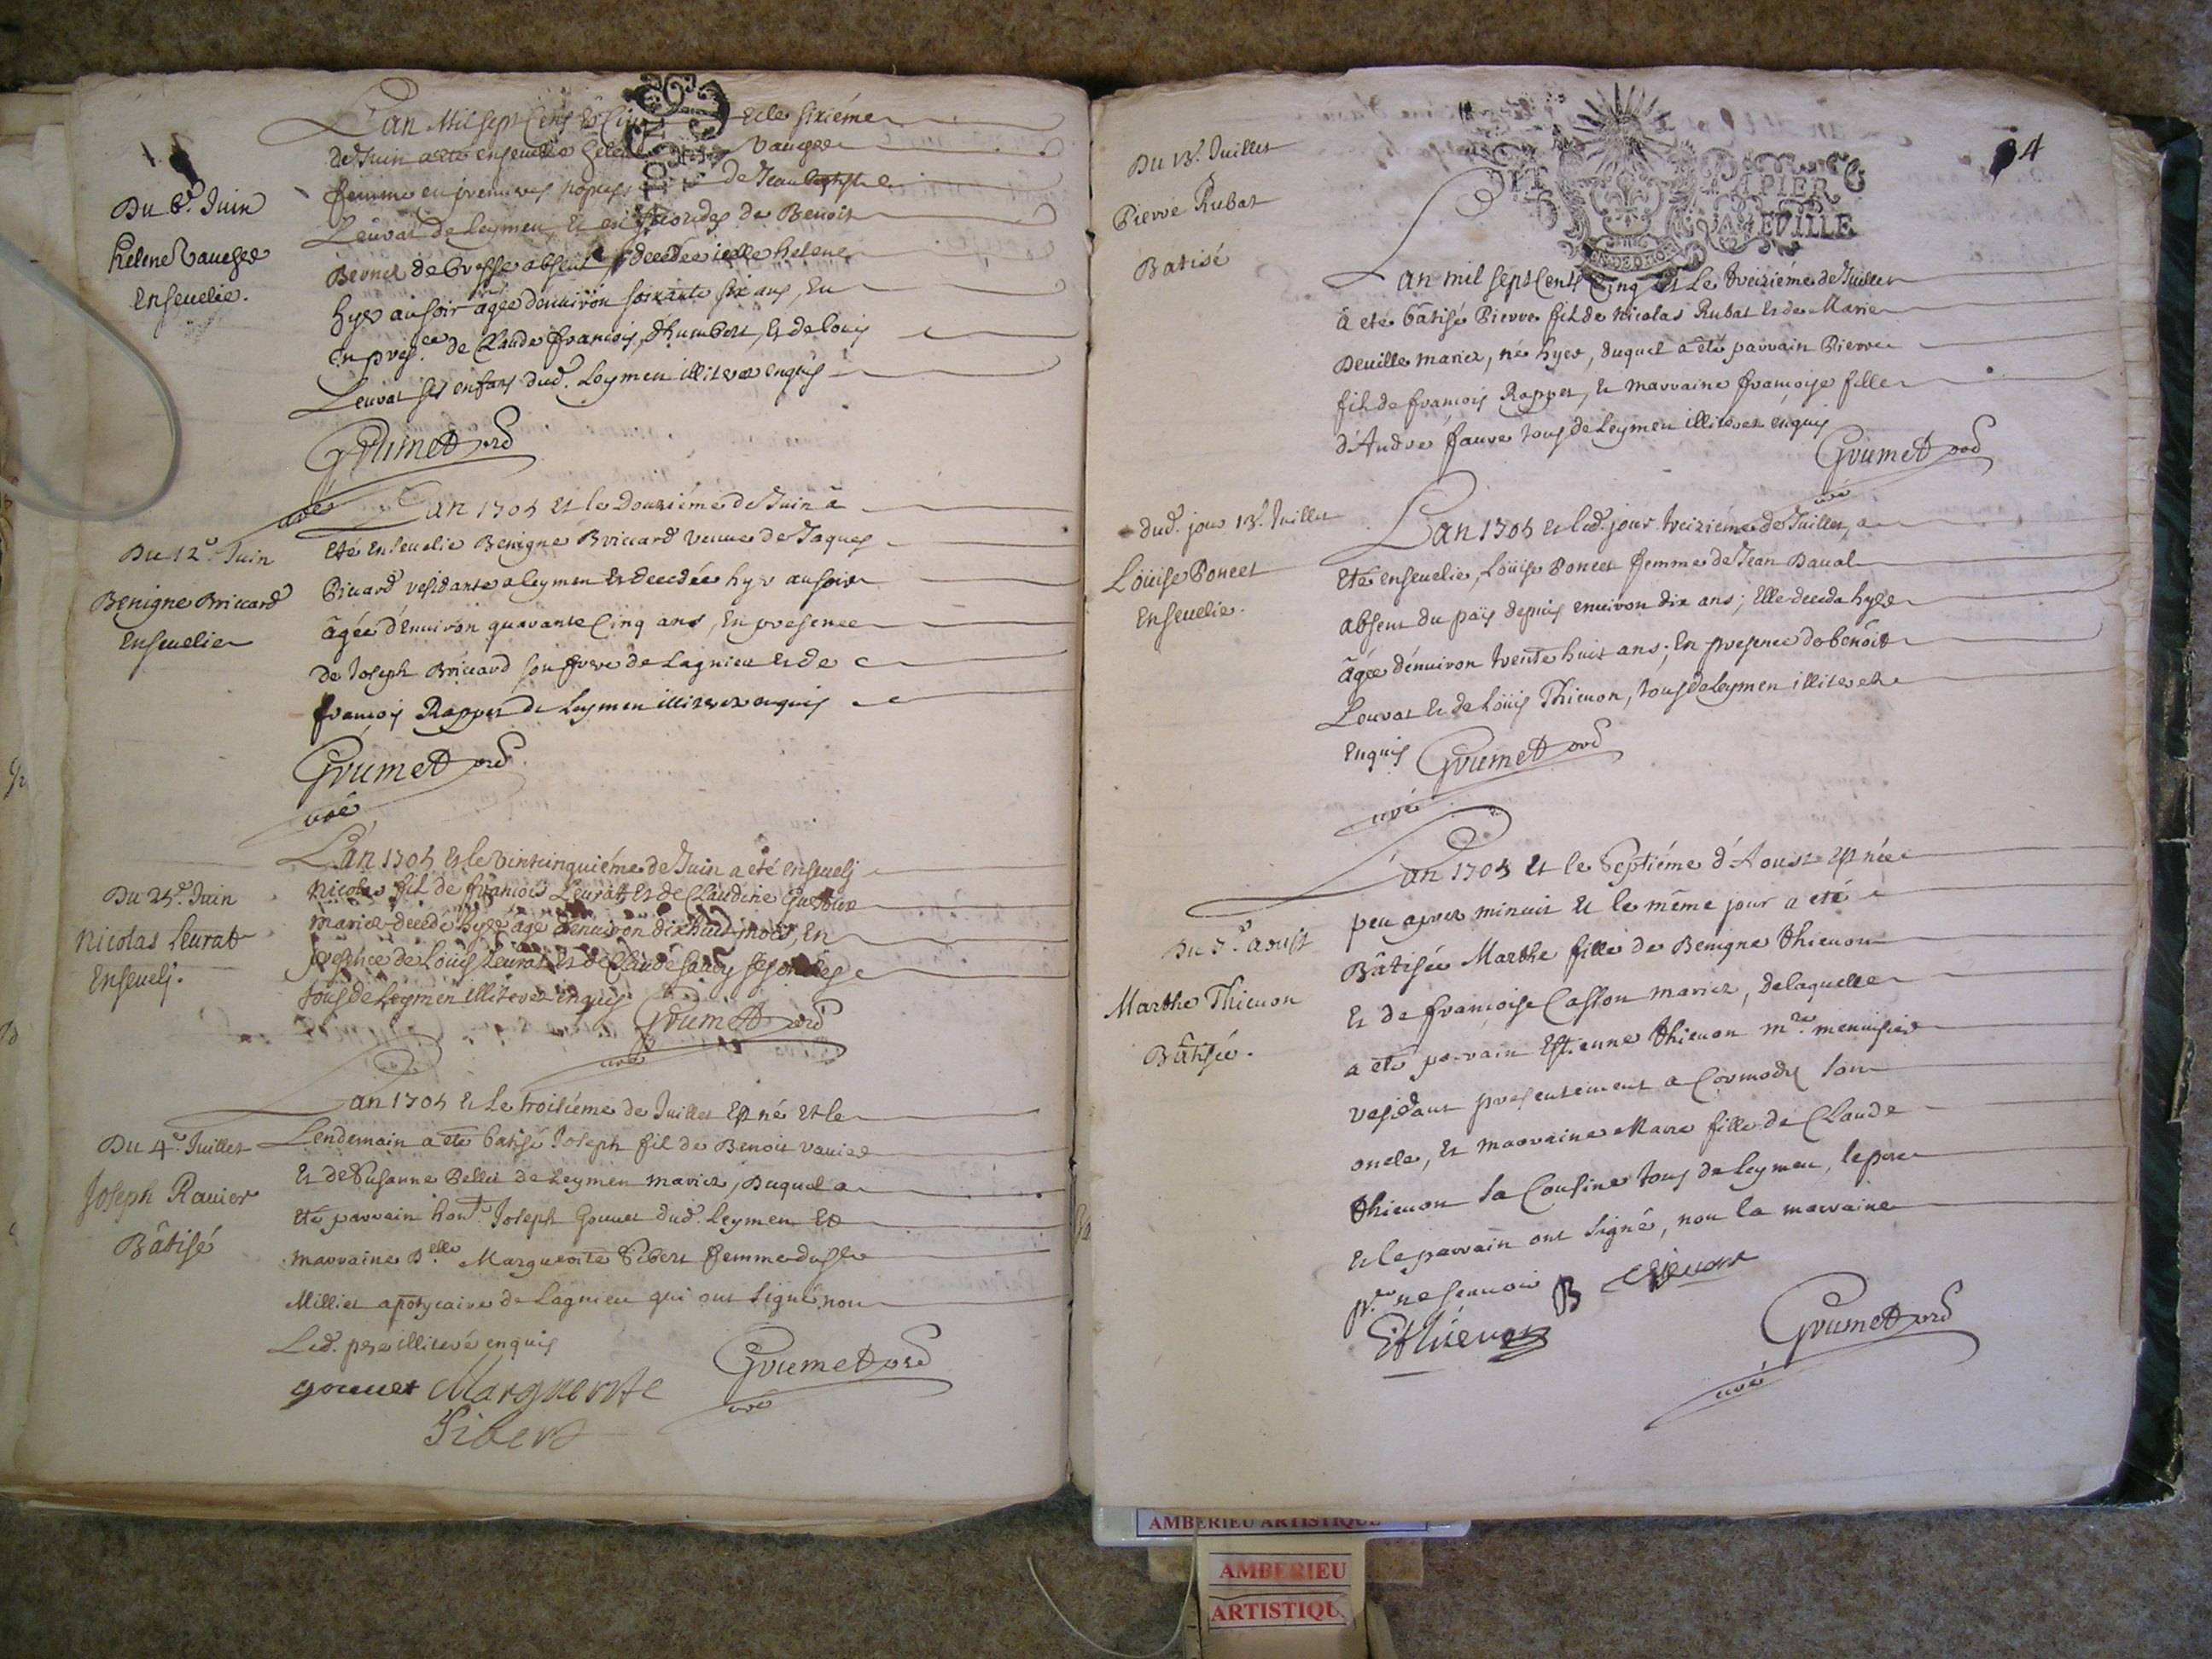 Du 6.e Juin
Helene Vaugee
Enseuelie.
L'an Mil sept Cens Et Cinq Et le sixiéme
de Juin a eté enseuelie Helene Vaugee
femme en premieres nopces de Jean baptiste
Leuvat de Leymen, Et en secondes de Benoit
Bernet de Bresse absent, decedée icelle helene
hyer au soir agée d'enuiron soixante six ans, En
En pres.ce de Claude françois, Humbert, Et de loüis
Leuvat ses enfans dud. Leymen illiterez enquis
Grumet ord
curé
Du 12.e Juin
Benigne Briccard
Enseuelie
L'an 1705 Et le Douziéme de Juin à
Eté Enseuelie Benigne Briccard veuue de Jaques
Briccard residante a Leymen Et decedée hyer au soir
âgée d'Enuiron quarante Cinq ans, En presence
de Joseph Briccard son frere de Lagnieu Et de
françois Rappet de Leymen illiterez enquis
Grumet ord
curé
Du 25.e Juin
Nicolas Leurat
Enseueli.
L'an 1705 Et le Vintcinquiéme de Juin a eté enseueli
Nicolas fil de françois Leurat Et de Claudine
mariez decedé hyer agé d'enuiron dix huit mois, En
presence de Loüis Leurat Et de Claude ses oncles
tous de Leymen illiterez enquis
Grumet ord
curé
Du 4.e Juillet
Joseph Rauier
Bâtisé
L'an 1705 Et Le troisiéme de Juillet Est né Et le
Lendemain a eté batisé Joseph fil de Benoit rauier
Et de Susanne Bellet de Leymen mariez, Duquel a
eté parrain hon.t Joseph Gouuet dud. Leymen Et
marraine D.elle Marguerite Sibert femme du Sr
Milliet apotycaire de Lagnieu qui ont signé, non
Led. pere illiteré enquis
gouuet Marguerite
Sibert
Grumet ord
curé
4
PAPIER
DEVILLE
Du 13.e Juillet
Pierre Rubat
Batisé
L'an mil sept Cents Cinq Et Le treiziéme de Juillet
à eté bâtisé Pierre fil de Nicolas Rubat Et de Marie
Deuille mariez, né hyer, duquel a eté parrain Pierre
fil de françois Rappet, Et marraine françoise fille
d'André faure tous de Leymen illiterez enquis
Grumet ord
curé
dud. jour 13.e Juillet
Loüise Poncet
Enseuelie.
L'an 1705 Et led. jour treiziéme de Juillet, a
Eté enseuelie, Loüise Poncet femme de Jean Daual
absent du païs depuis enuiron dix ans; Elle deceda hyer
âgée d'enuiron trente huit ans; En presence de benoît
Leuvat Et de Loüis Thieuon, tous de Leymen illiterez
Enquis
Grumet ord
curé
Du 7.e aoust
Marthe Thieuon
Bâtisée.
L'an 1705 Et le Septiéme d'Aoust est née
peu apres minuit Et le même jour a eté
Bâtisée Marthe fille de Benigne thieuon
Et de françoise Casson mariez, de laquelle
a eté parrain Estienne thieuon m.re menuisier
residant presentement a Cormodz son
oncle, Et marraine Marie fille de Claude
thieuon sa Cousine tous de Leymen, le pere
Et le parrain ont signé, non la marraine
pr. ne sçauoir
B thieuon
E thieuon
Grumet ord
curé
AMBERIEU ARTISTIQUE
AMBERIEU
ARTISTIQU